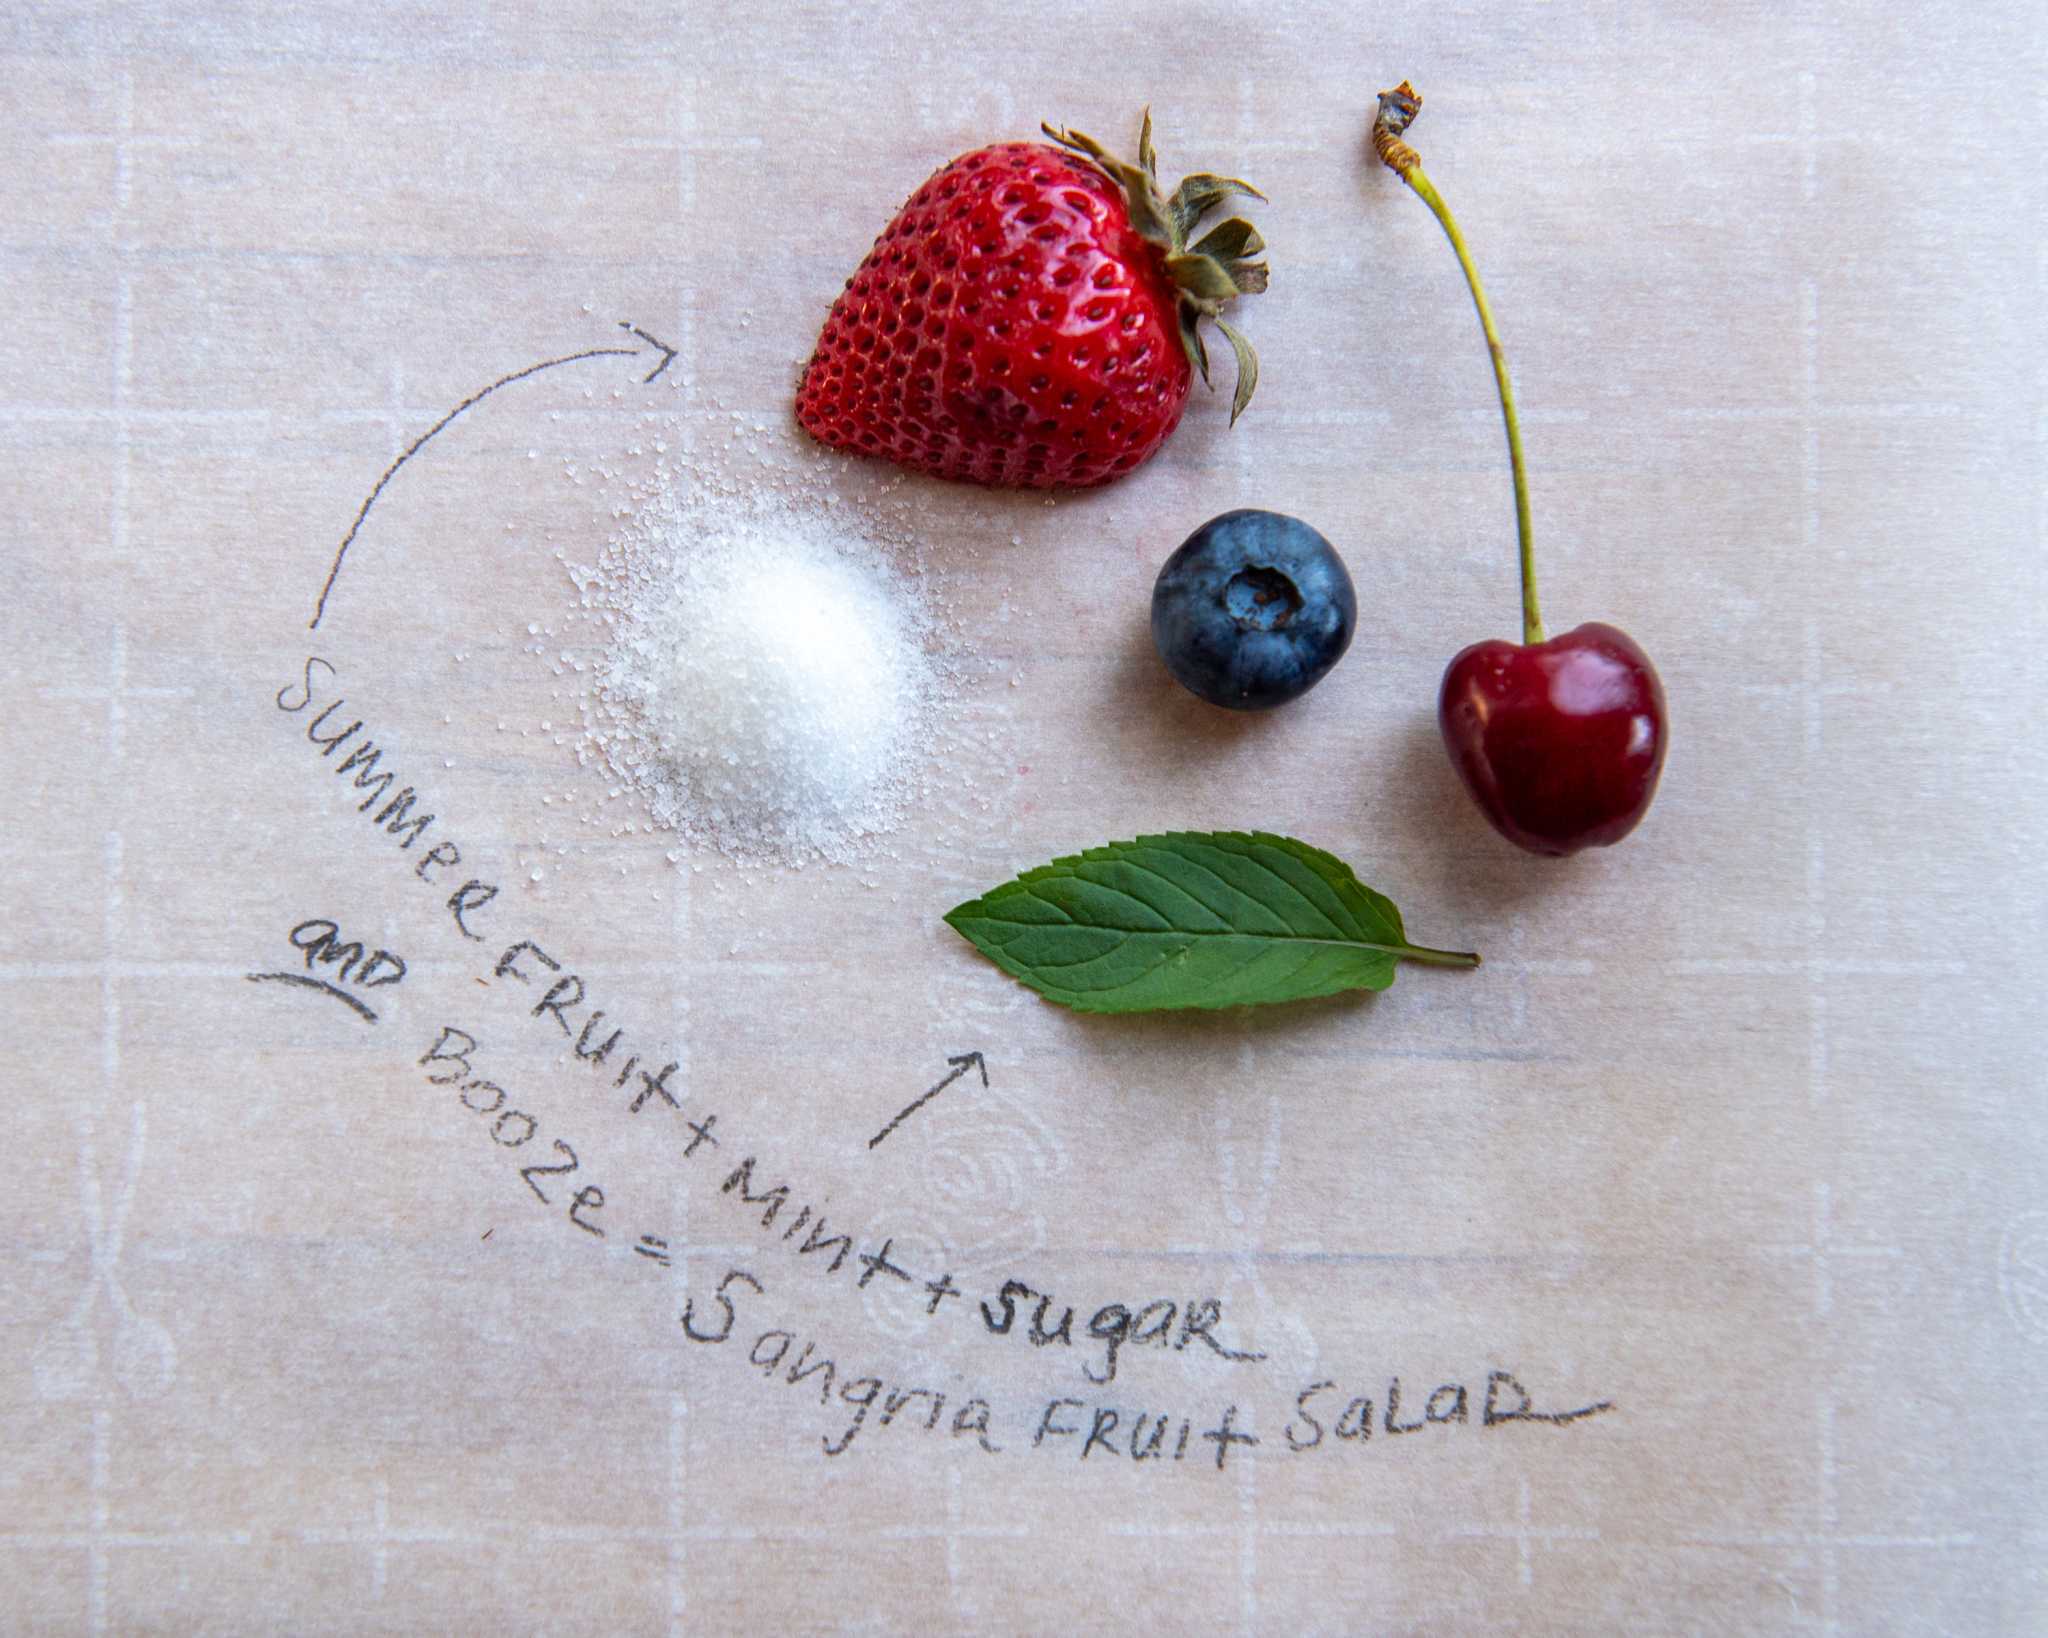 Summer Fruit + Mint + Sugar
and Booze = Sangria Fruit Salad